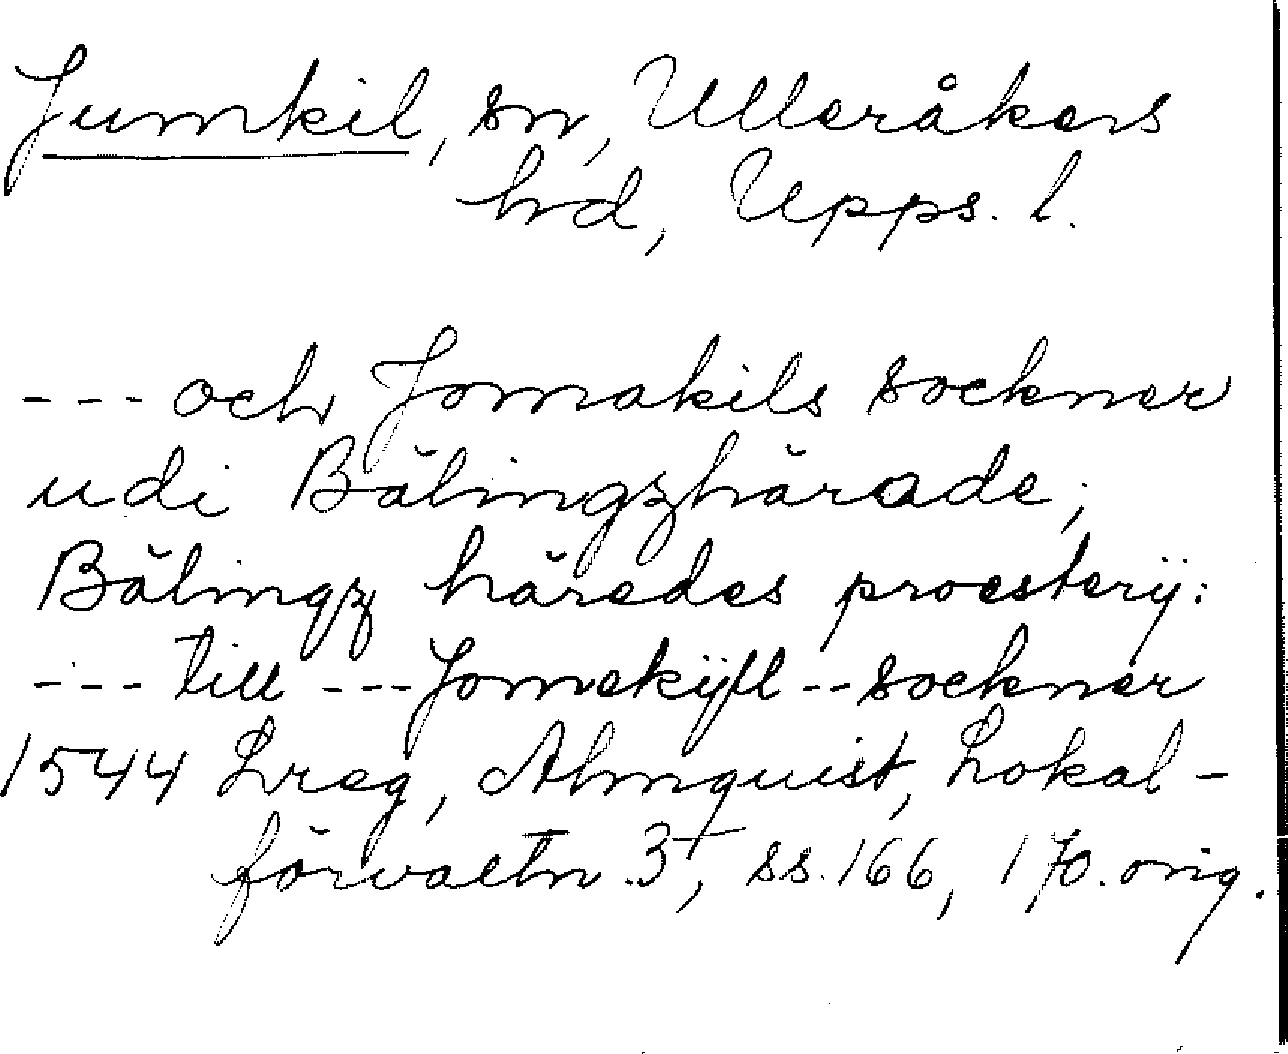 Jumkil, sn, Ulleråkers
hrd, Upps. l.
--- och Jomakils socknar
udi Bälingzhärade;
Bälingz häredes proesterij:
--- till --- Jomekijll -- socknar
1544 Lreg, Almquist, Lokal-
förvaltn. 3, ss. 166, 170. orig.